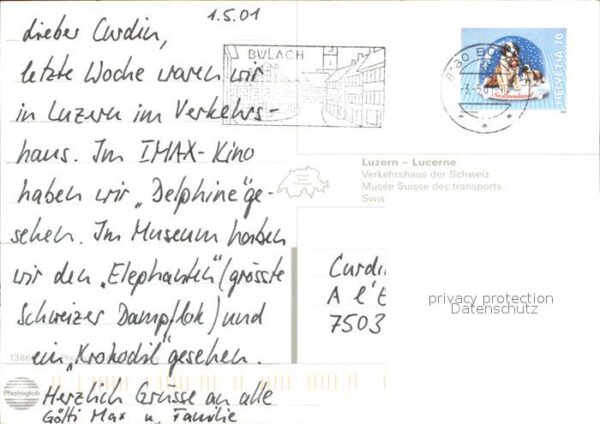 1.5.01
Lieber Curdin,
letzte Woche waren wir
in Luzern im Verkehrs-
haus. Im IMAX-Kino
haben wir „Delphine" ge-
sehen. Im Museum haben
wir den „Elephanten" (grösste
Schweizer Dampflok) und
ein „Krokodil" gesehen.
Herzlich Grüsse an alle
Götti Max u. Familie
BÜLACH
HELVETIA 70
Luzern – Lucerne
Verkehrshaus der Schweiz
Musée Suisse des transports
Swis
Curdin
A l'E
7503
privacy protection
Datenschutz
Photoglob